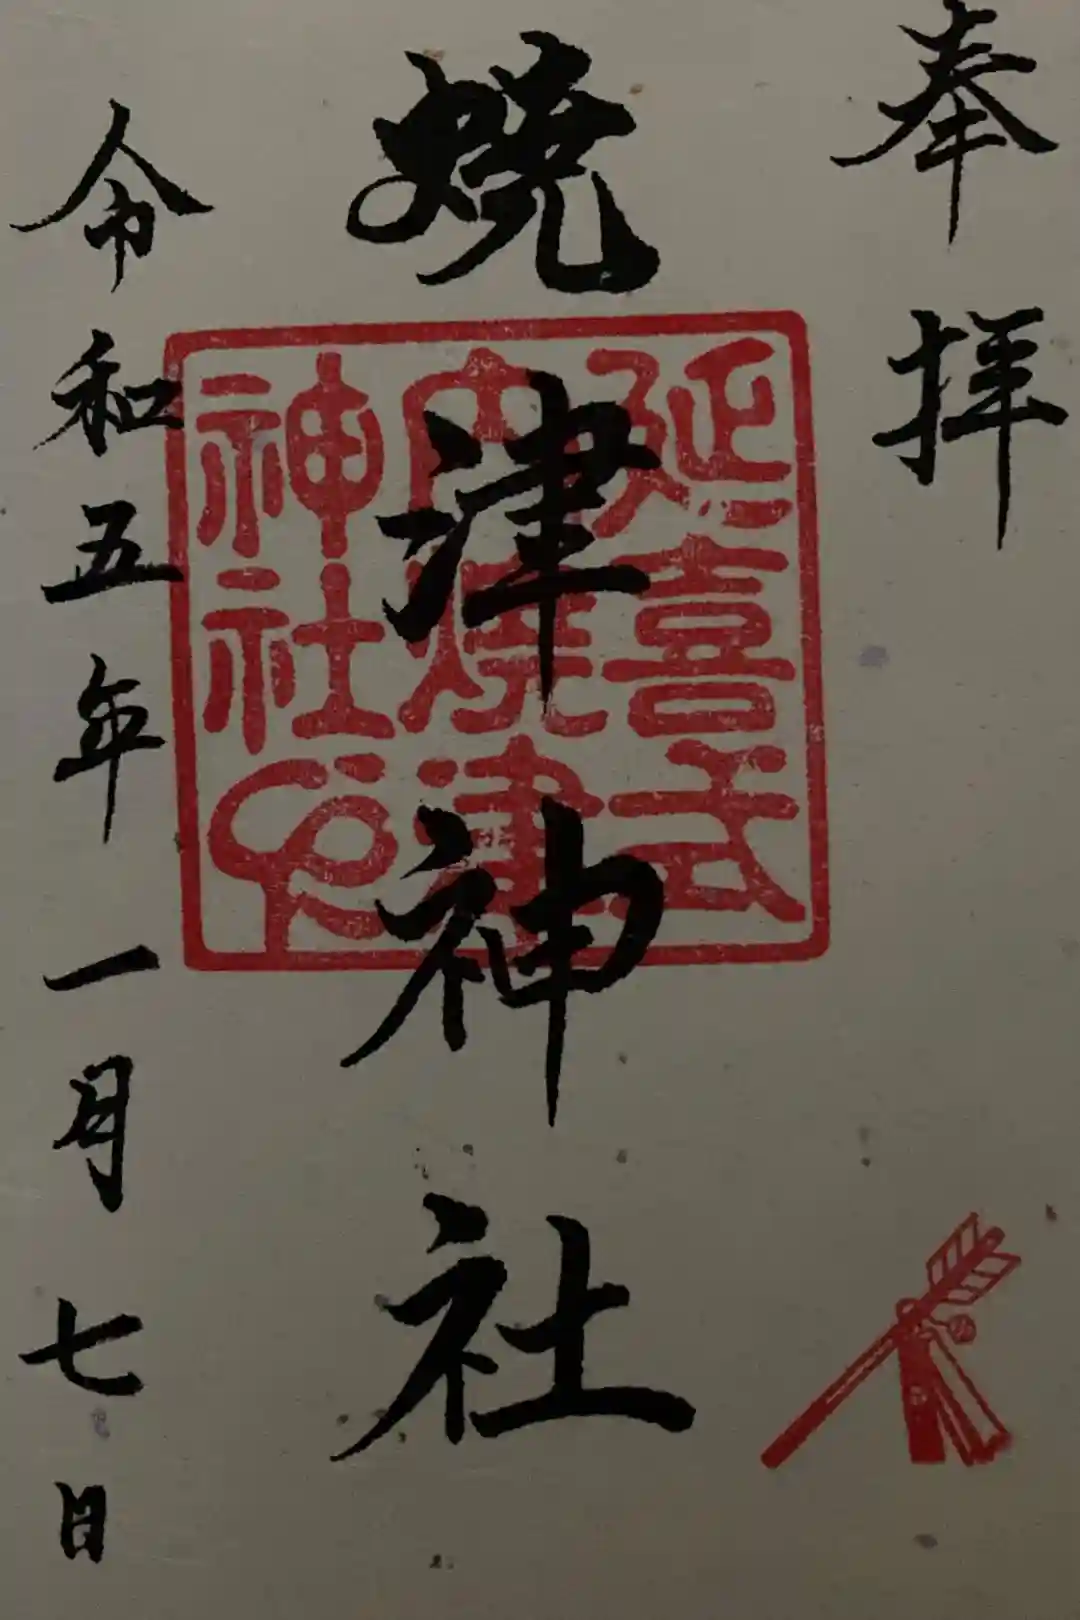 奉拝
焼津神社
延喜式
内焼津
神社印
令和五年一月七日